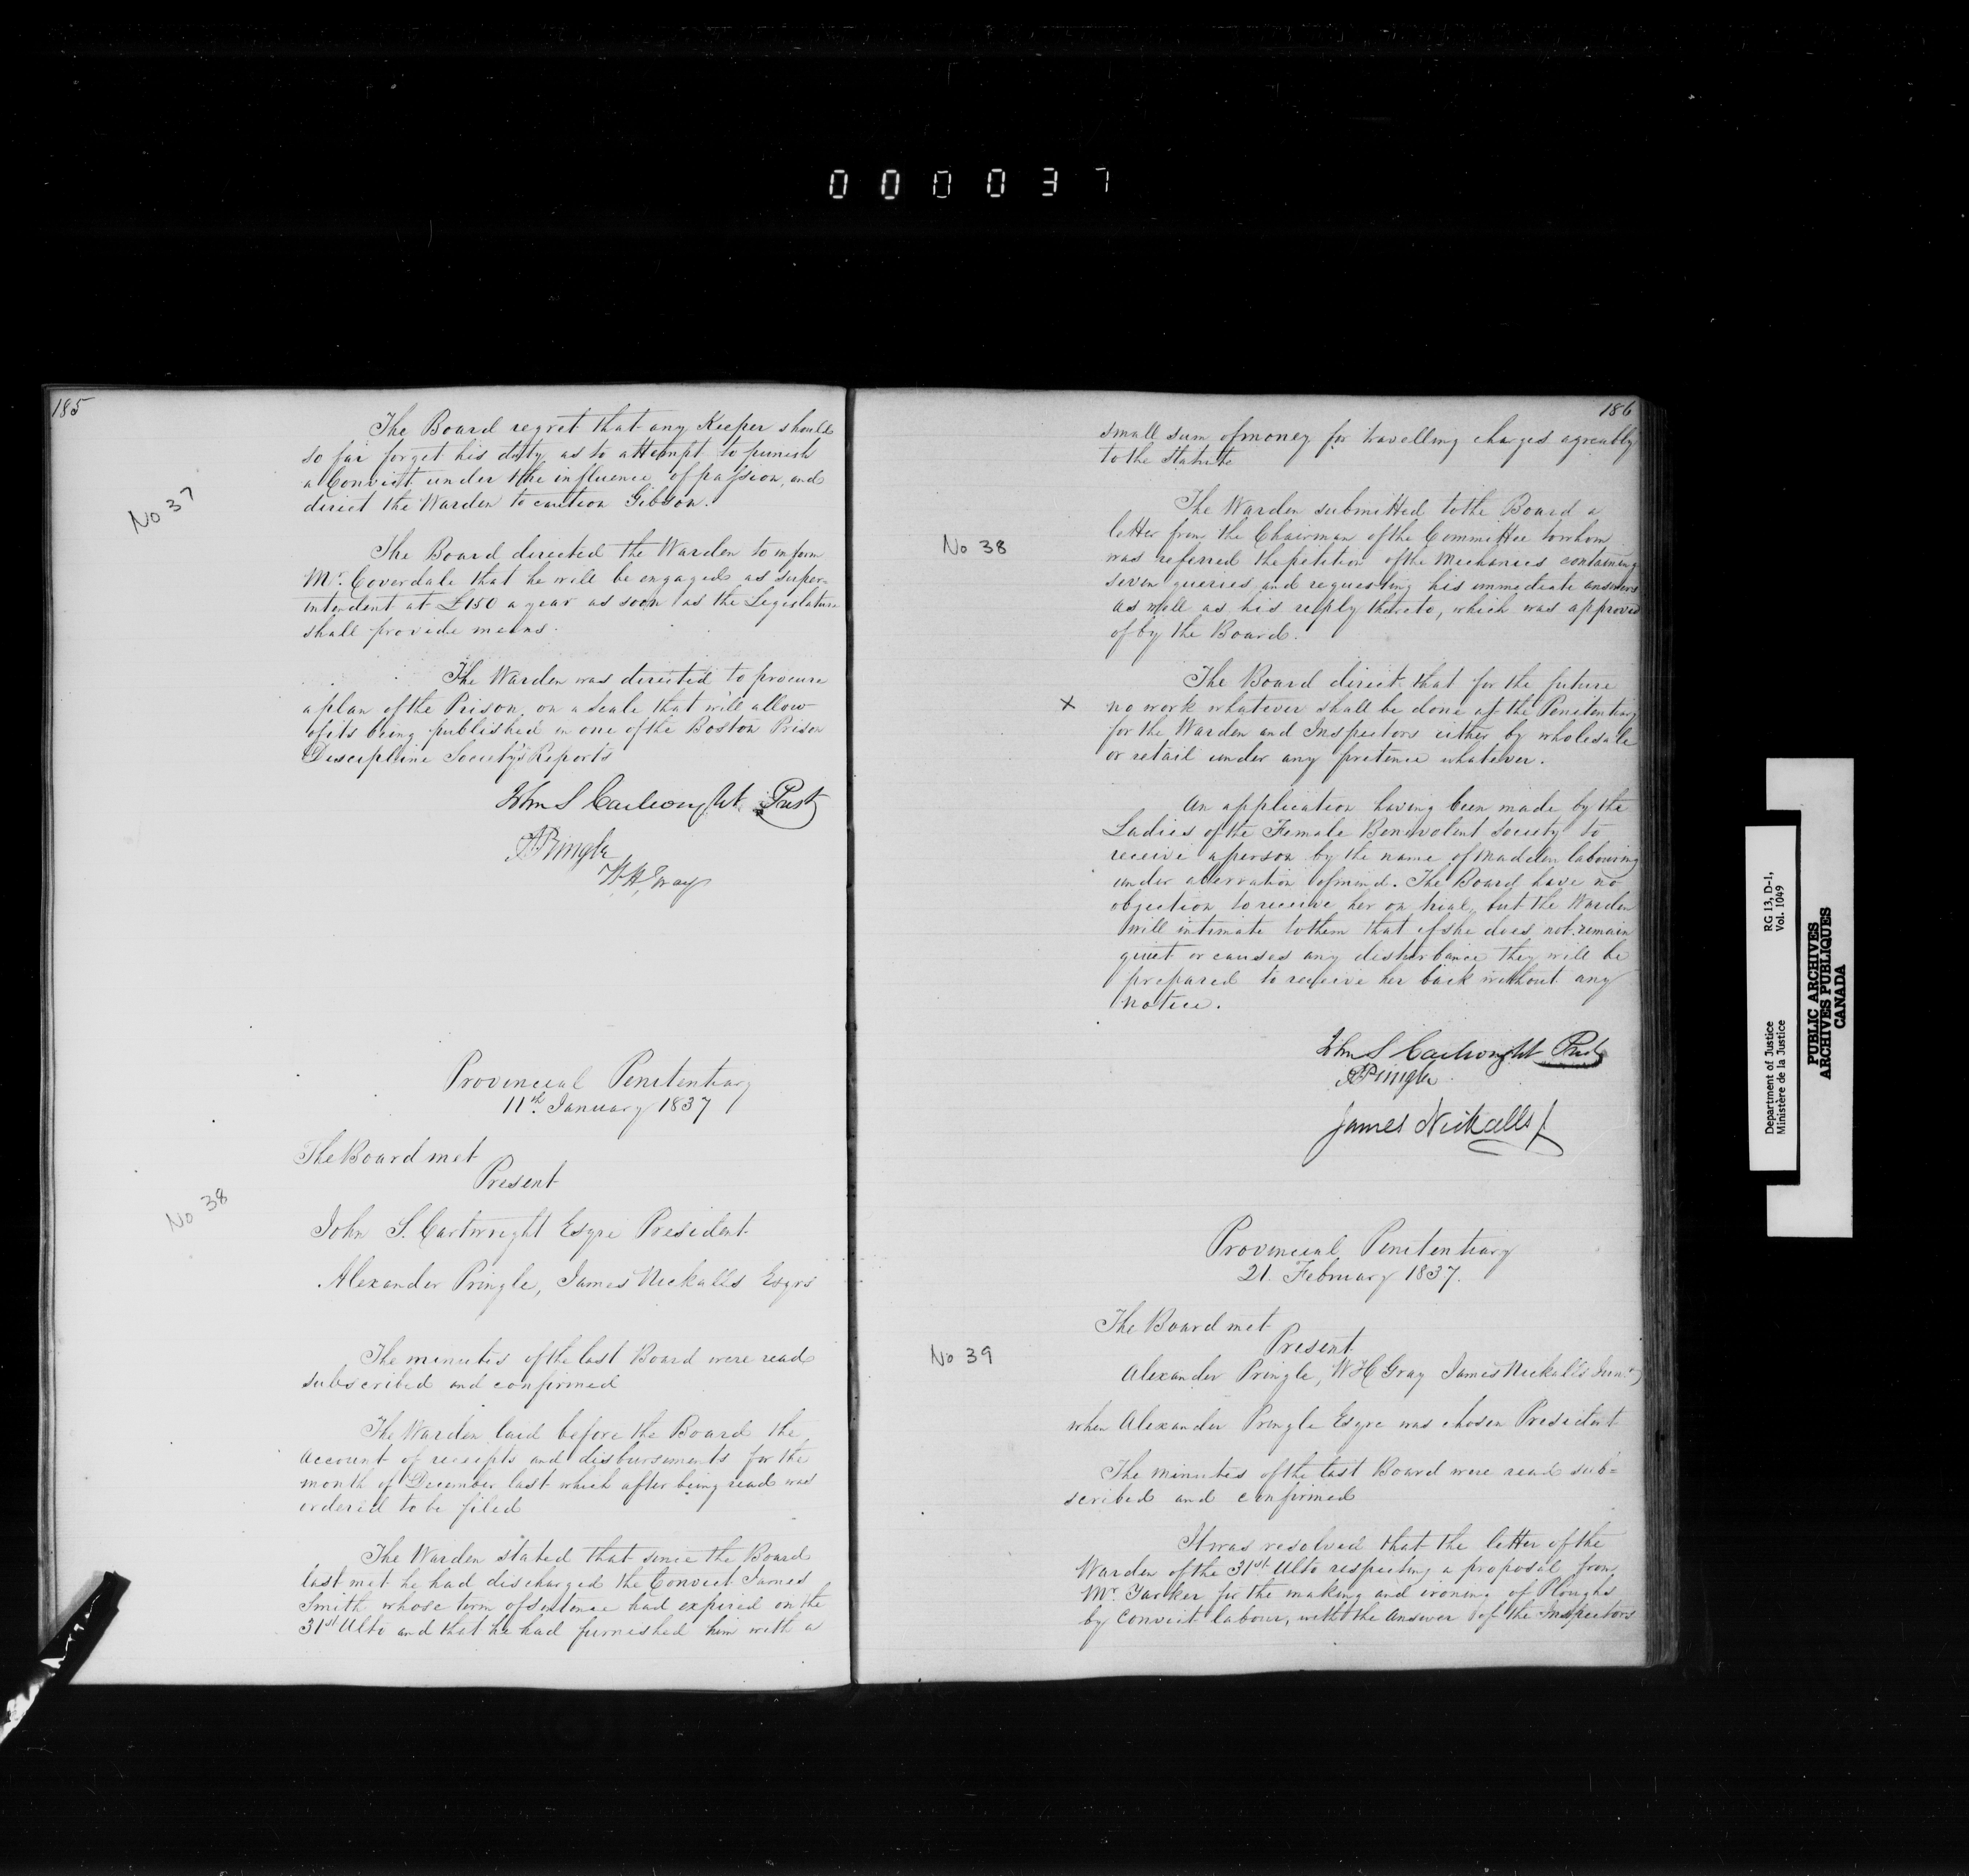 000037
185
No 37
The Board regret that any Keeper should
so far forget his duty as to attempt to punish
a Convict under the influence of passion, and
direct the Warden to caution Gibson.
The Board directed the Warden to inform
Mr. Coverdale that he will be engaged as super=
intendent at £150 a year as soon as the Legislature
shall provide means.
The Warden was directed to procure
a plan of the Prison, on a Scale that will allow
of its being published in one of the Boston Prison
Discipline Society's Reports
John S Cartwright Prest
A Pringle
W H Gray
Provincial Penitentiary
11th January 1837
No 38
The Board met
Present
John S. Cartwright Esqre President
Alexander Pringle, James Nickalls Esqrs
The minutes of the last Board were read
subscribed and confirmed
The Warden laid before the Board the
account of receipts and disbursements for the
month of December last which after being read was
ordered to be filed
The Warden stated that since the Board
last met he had discharged the Convict James
Smith whose term of sentence had expired on the
31st Ulto and that he had furnished him with a
186
small sum of money for travelling charges agreably
to the Statute
No 38
The Warden submitted to the Board a
letter from the Chairman of the Committee to whom
was referred the petition of the Mechanics containing
seven queries and requesting his immediate answers
as well as his reply thereto, which was approved
of by the Board.
The Board direct that for the future
x no work whatever shall be done at the Penitentiary
for the Warden and Inspectors either by wholesale
or retail under any pretence whatever.
An application having been made by the
Ladies of the Female Benevolent Society to
receive a person by the name of Madden labouring
under aberration of mind. The Board have no
objection to receive her on trial, but the Warden
will intimate to them that if she does not remain
quiet or causes any disturbance they will be
prepared to receive her back without any
notice.
John S Cartwright Prest
A Pringle
James Nickalls J.
Provincial Penitentiary
21 February 1837.
The Board met
Present
No 39
Alexander Pringle, W H Gray James Nickalls Junr
when Alexander Pringle Esqre was chosen President
The minutes of the last Board were read sub=
scribed and confirmed
It was resolved that the letter of the
Warden of the 31st Ulto respecting a proposal from
Mr. Yarker for the making and ironing of Ploughs
by Convict labour, with the answer of the Inspectors
Department of Justice
Ministère de la Justice
RG 13, D-1,
Vol. 1049
PUBLIC ARCHIVES
ARCHIVES PUBLIQUES
CANADA